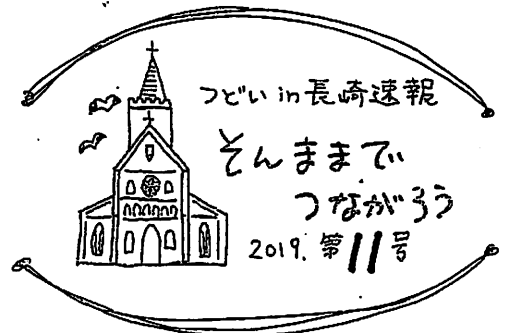 つどい in 長崎速報
そんままで
つながろう
2019. 第11号